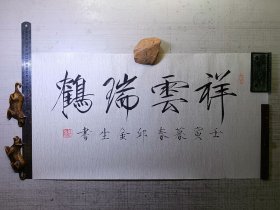 祥雲瑞鶴
壬寅暮春邱金生書